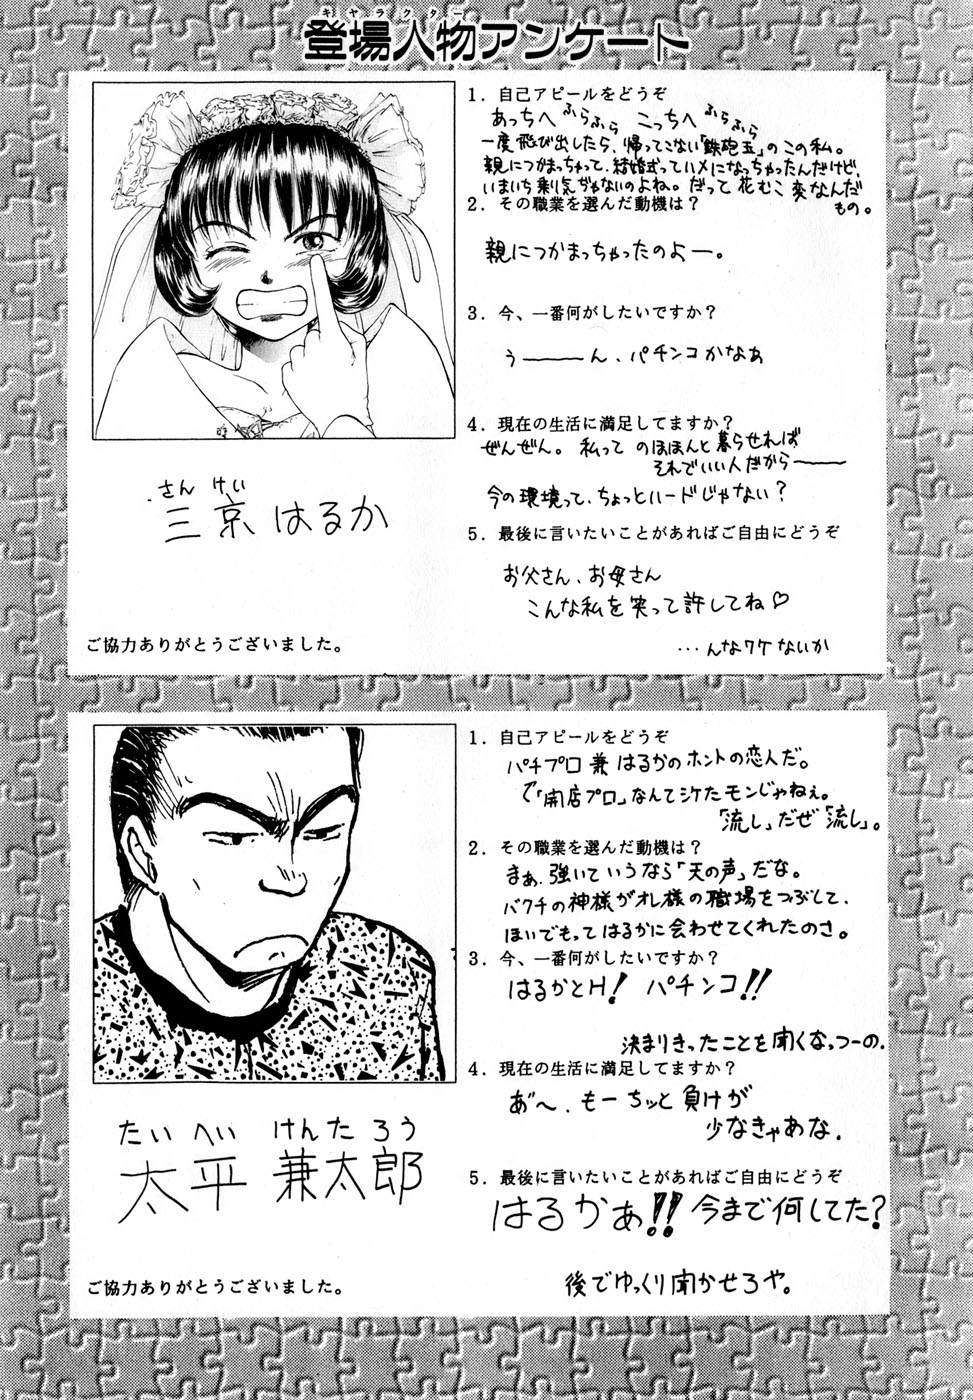 キャラクター
登場人物アンケート
1．自己アピールをどうぞ
あっちへふらふら こっちへふらふら
一度飛び出したら、帰ってこない「鉄砲玉」のこの私。
親につかまっちゃって、結婚式ってハメになっちゃったんだけど、
いまいち乗り気がないのよね。だって花むこ変なんだ
もの。
2．その職業を選んだ動機は？
親につかまっちゃったのよー。
3．今、一番何がしたいですか？
う――――ん、パチンコかなあ
4．現在の生活に満足してますか？
ぜんぜん。私って のほほんと暮らせれば
それでいい人だから――――
今の環境って、ちょっとハードじゃない？
5．最後に言いたいことがあればご自由にどうぞ
お父さん、お母さん
こんな私を笑って許してね♡
…んなワケないか
さんけい
三京 はるか
ご協力ありがとうございました。
1．自己アピールをどうぞ
パチプロ兼はるかのホントの恋人だ。
で「開店プロ」なんてシケたモンじゃねぇ。
「流し」だぜ「流し」。
2．その職業を選んだ動機は？
まぁ、強いていうなら「天の声」だな。
バクチの神様がオレ様の職場をつぶして、
ほいでもってはるかに会わせてくれたのさ。
3．今、一番何がしたいですか？
はるかとH！ パチンコ!!
決まりきったことを聞くなっつーの.
4．現在の生活に満足してますか？
あ゛〜、もーちッと負けが
少なきゃあな.
5．最後に言いたいことがあればご自由にどうぞ
はるかぁ!! 今まで何してた？
後でゆっくり聞かせろや。
たいへい けんたろう
太平 兼太郎
ご協力ありがとうございました。